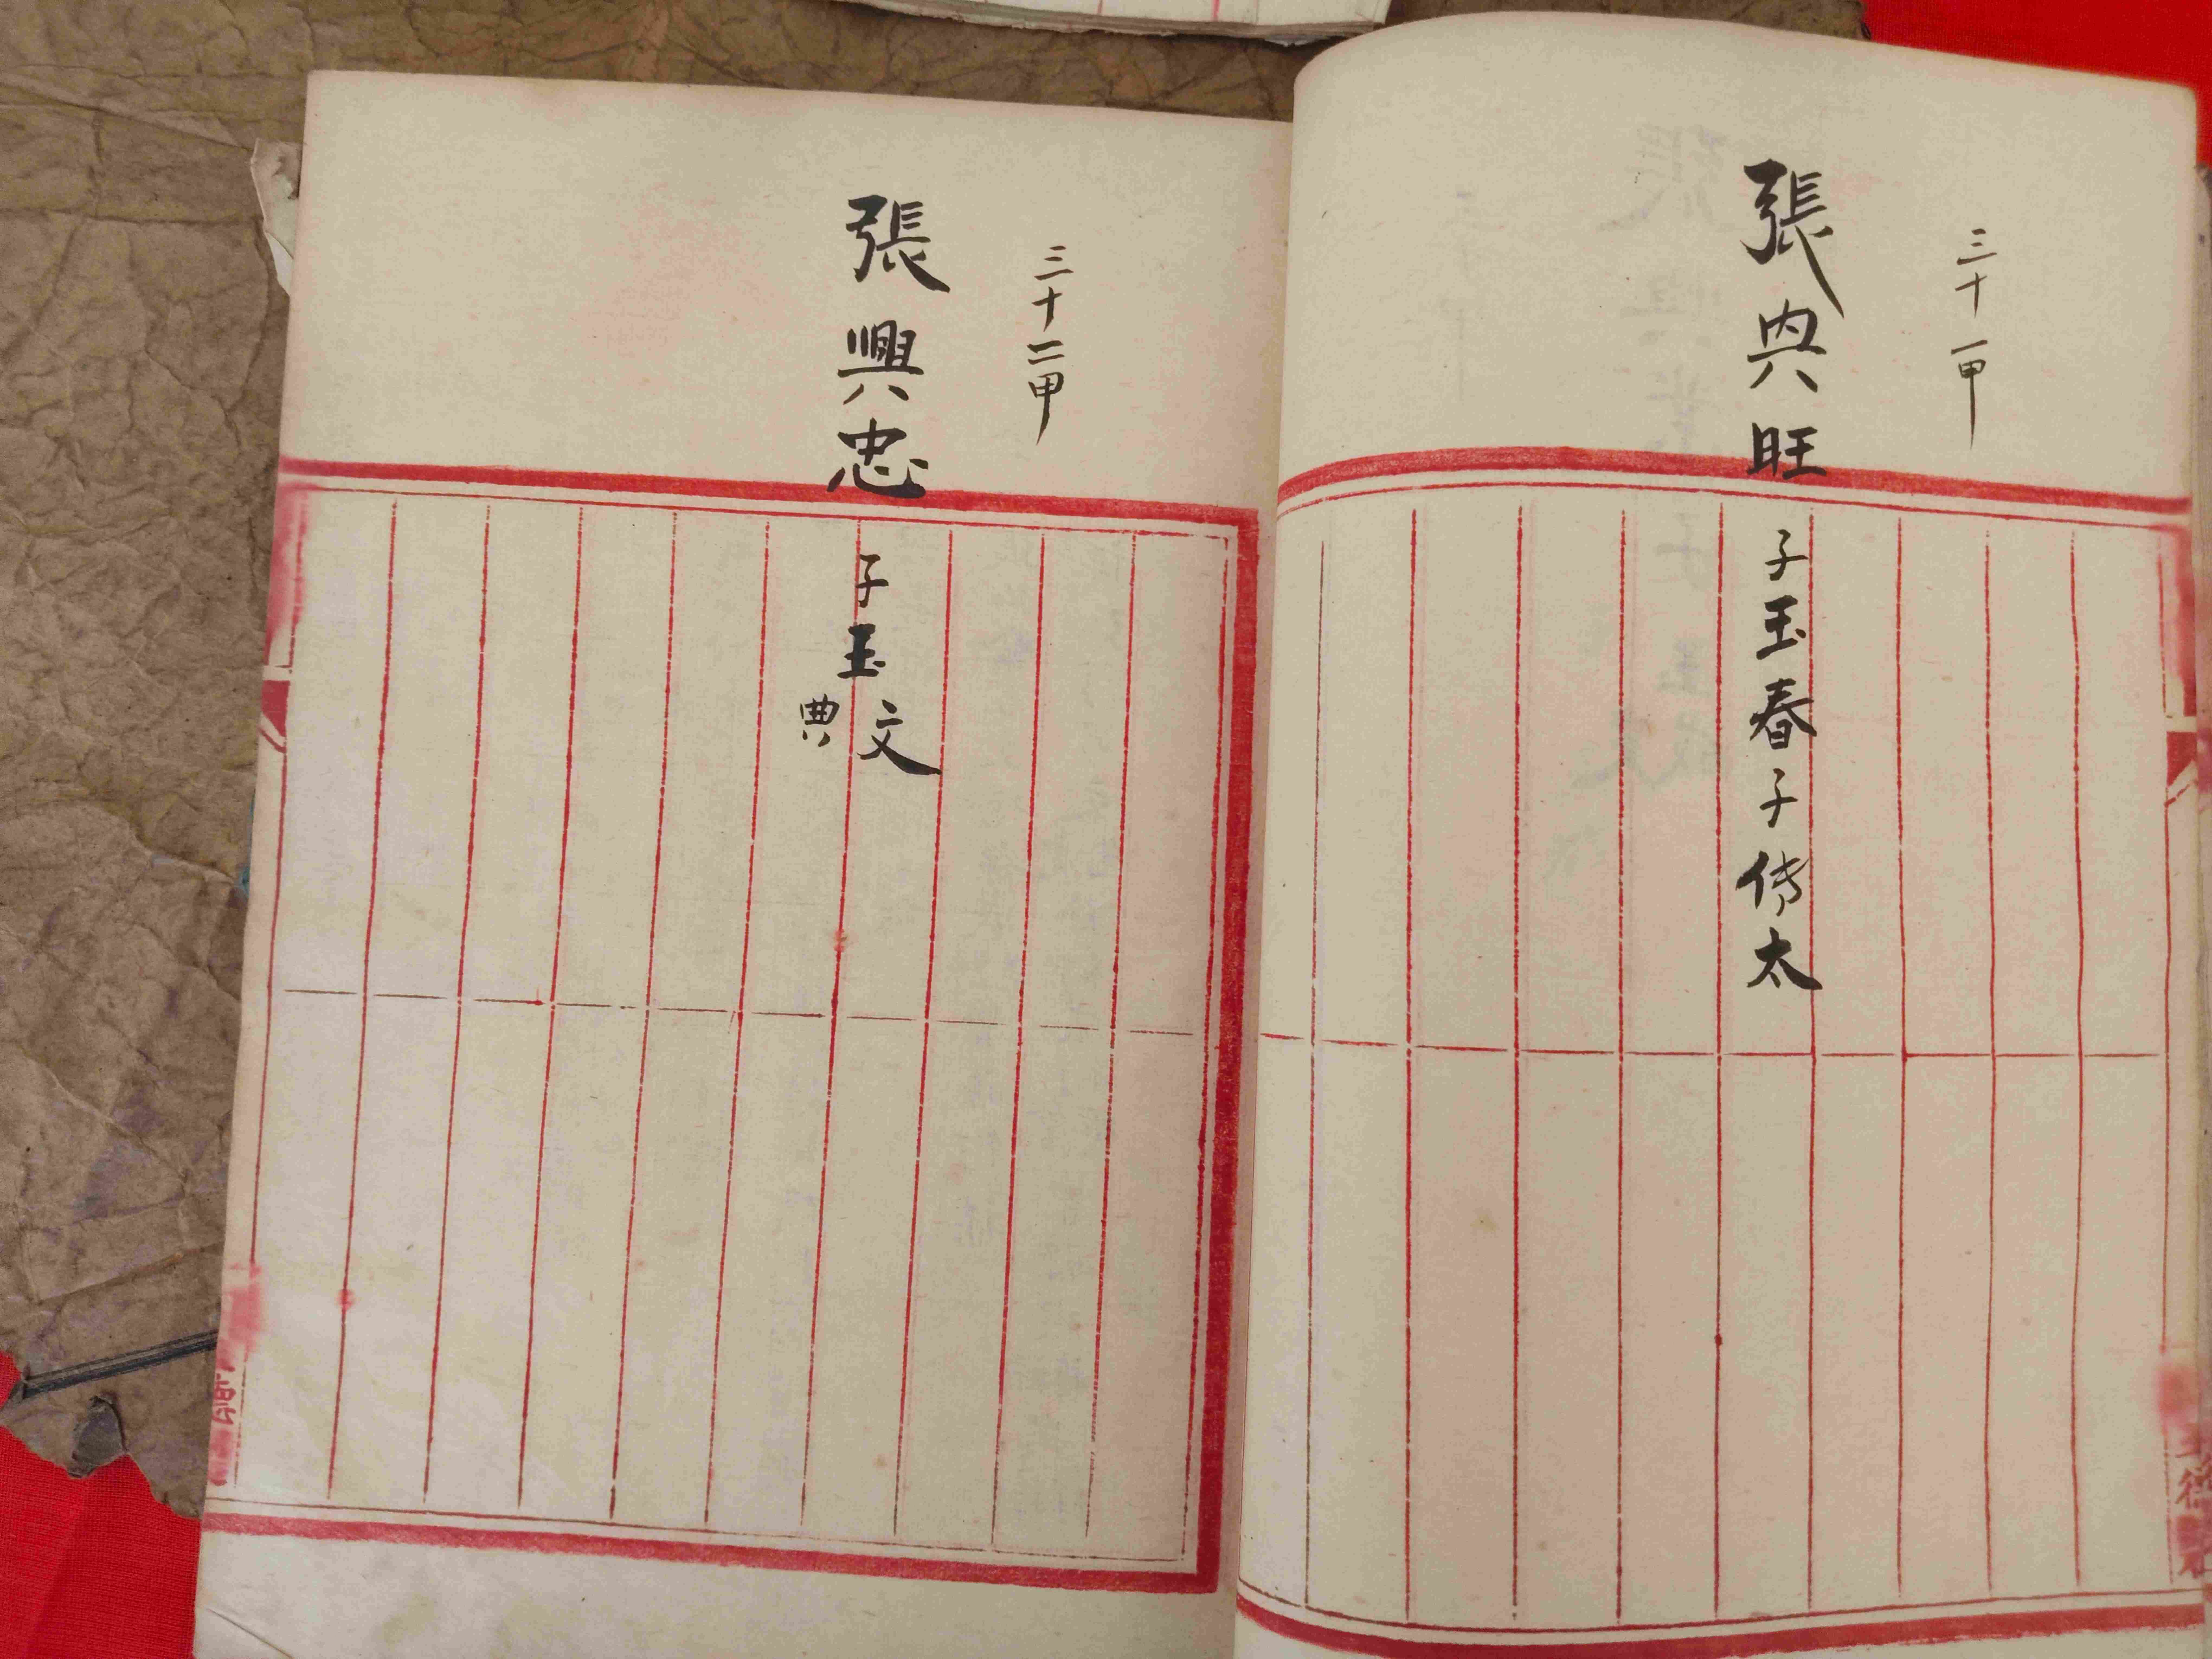 三十一甲
張兴旺
子玉春子传太
三十二甲
張興忠
子玉文
典